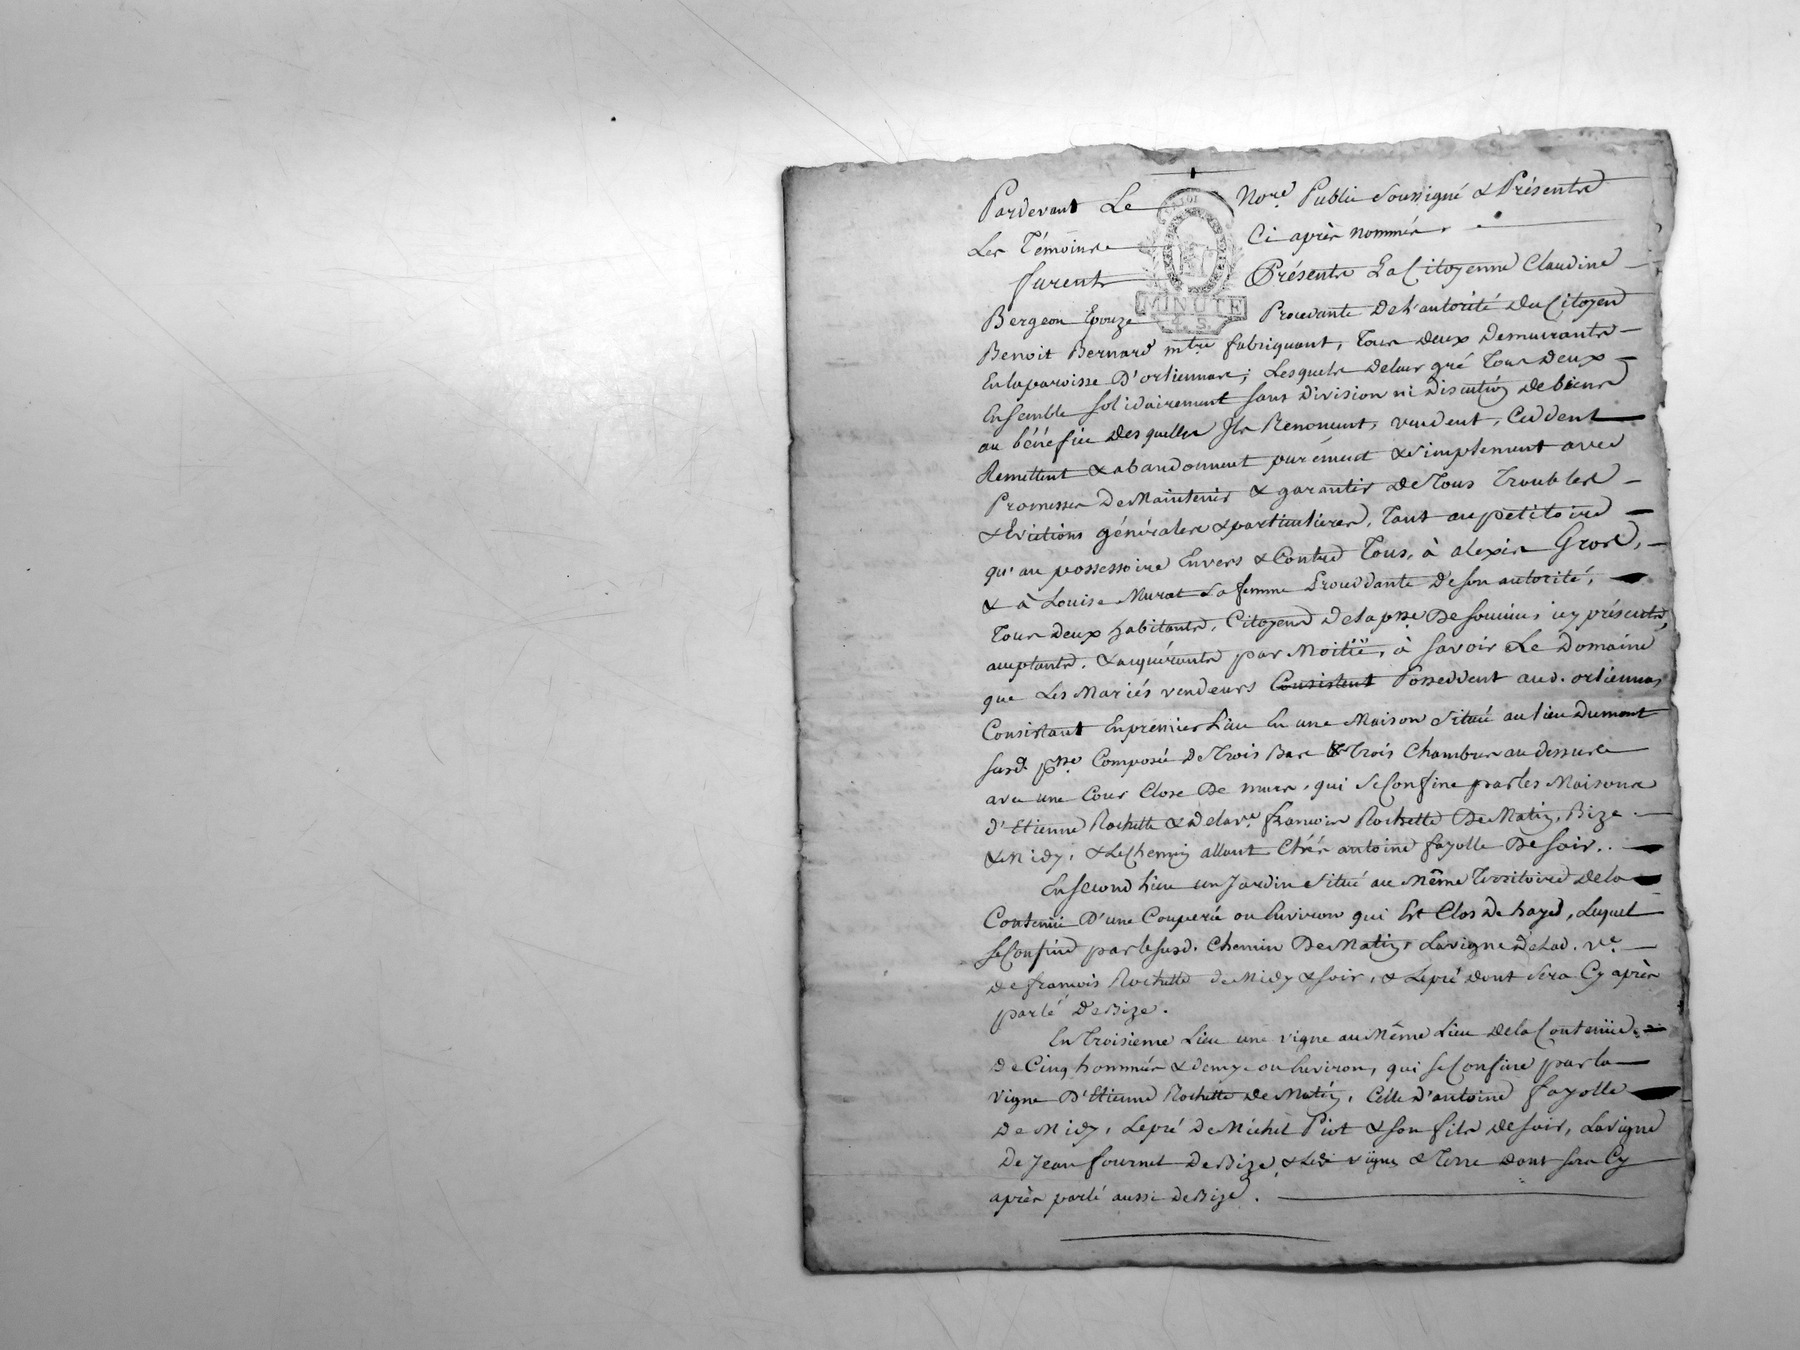 Pardevant Le Nore Public Soussigné & Présents
Les Témoins Ci après nommés.
furent Présents La Citoyenne Claudine
Bergeon Epouze Procedante De l'autorité Du Citoyen
MINUTE
Benoit Bernard mtre fabriquant, Tous deux Demeurants
En la paroisse D'orliennas; Lesquels de leur gré Tous Deux
Ensemble solidairement sans division ni discution de biens
au bénéfice desquelles Ils Renoncent, vendent, Ceddent
Remettent & abandonnent purément & simplement avec
Promesses De Maintenir & garantir de Tous Troubles
& Evictions générales & particulieres, Tant au petitoire
qu'au possessoire Envers & Contre Tous, à alexis Gros,
& à Louise Murat sa femme Procedante De son autorité,
Tous deux habitants, Citoyens de la psse De soucieu icy présents,
acceptants, & acquérants par Moitié, à savoir Le Domaine
que Les Mariés vendeurs Consistent Posseddent aud. orliennas
Consistant En premier Lieu En une Maison Située au lieu Dumont
susd. psse Composée de Trois Bas & Trois Chambres au dessus
avec une Cour Close De murs, qui se Confine par les Maisons
d'Etienne Rochette & de la ve. francois Rochette De Matin, Bize
& Midy, & Le Chemin allant Chés antoine fayolle De soir..
En second Lieu un Jardin Situé au Même Territoire de la
Contenüe D'une Couperée ou Environ qui Est Clos de hayes, Lequel
se Confine par le susd. Chemin De Matin, La vigne de Lad. ve.
de francois Rochette de Midy & soir, & Le pré dont sera Cy après
parlé de Bize.
En Troisieme Lieu une vigne au Même Lieu de la Contenüe
de Cinq hommées & demy ou Environ, qui se Confine par la
vigne D'Etienne Rochette de Matin, Celle d'antoine fayolle
De Midy, Le pré de Michel Piot & son fils de soir, La vigne
De Jean fournel de Bize, & Les vignes & Terre dont sera Cy
après parlé aussi de Bize.